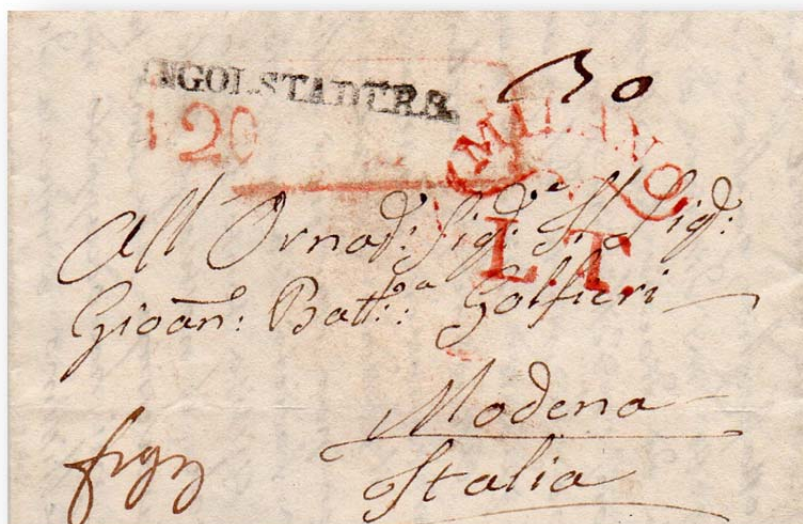 INGOLSTADT.R.3.
30
20
MILANO
L.T.
All Ornad: Sig: Sig:
Gioan: Batt:a Golfieri
Modena
Italia